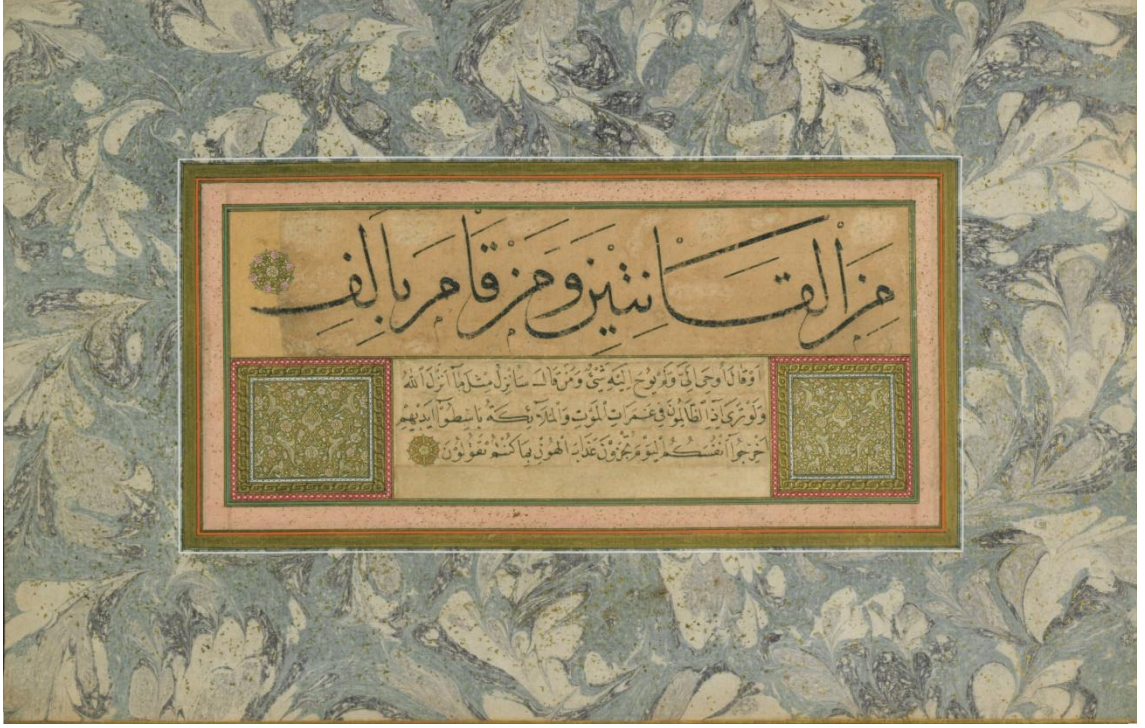 من القانتين ومن قام بالف
او قال اوحي الي ولم يوح اليه شئ ومن قال سانزل مثل ما انزل الله
ولو ترى اذ الظالمون في غمرات الموت والملائكة باسطوا ايديهم
اخرجوا انفسكم اليوم تجزون عذاب الهون بما كنتم تقولون